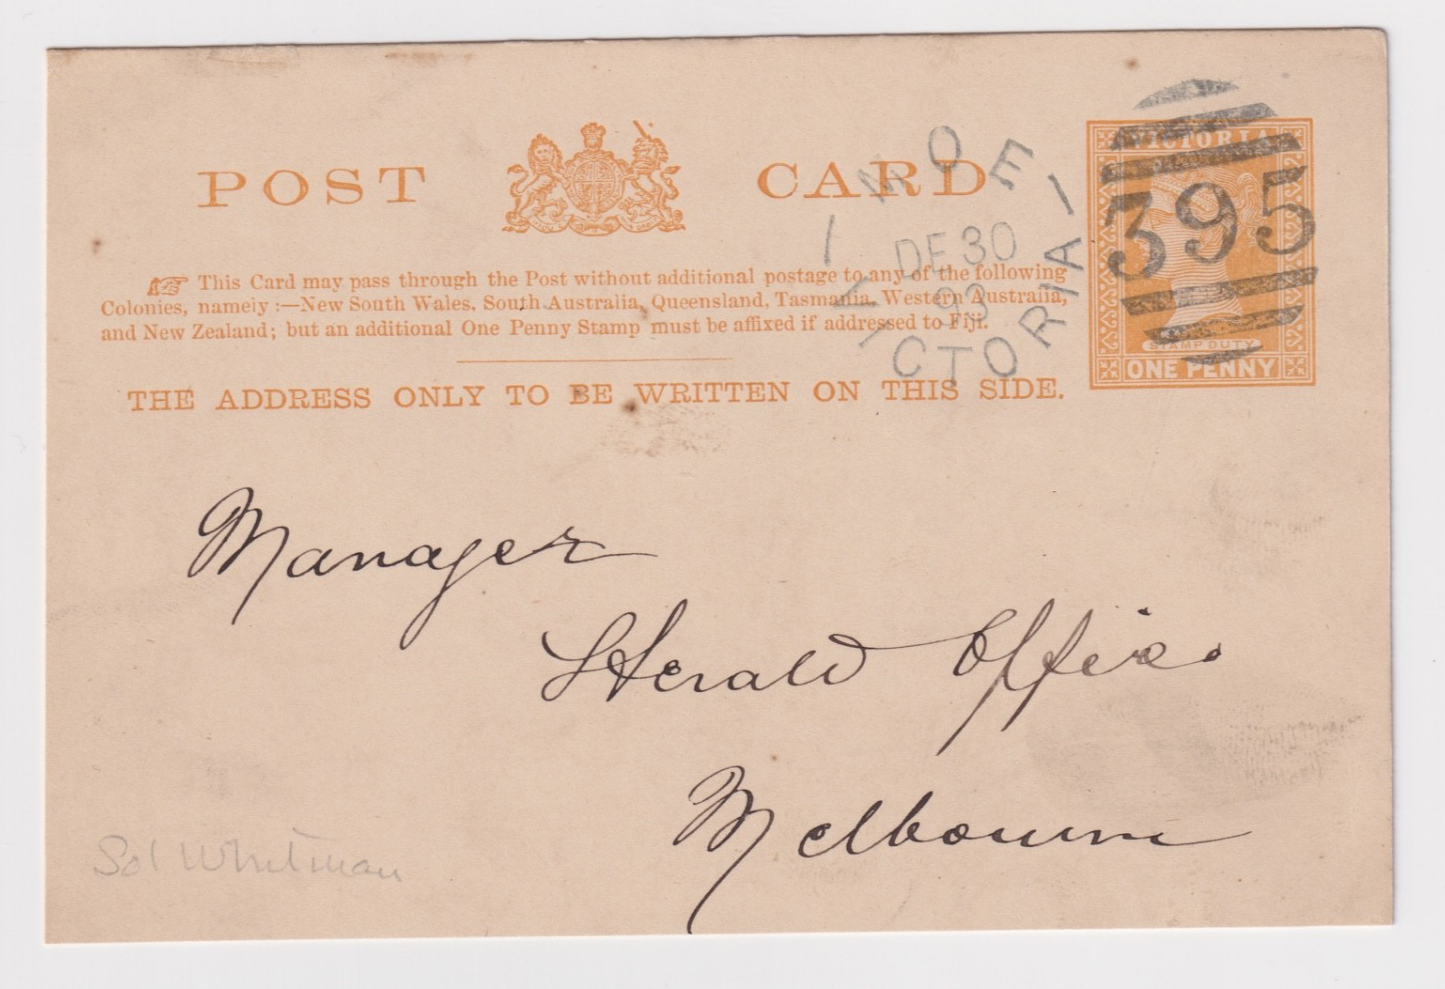 POST CARD
This Card may pass through the Post without additional postage to any of the following
Colonies, namely :—New South Wales, South Australia, Queensland, Tasmania, Western Australia,
and New Zealand; but an additional One Penny Stamp must be affixed if addressed to Fiji.
THE ADDRESS ONLY TO BE WRITTEN ON THIS SIDE.
MOE
DE 30
93
VICTORIA
VICTORIA
395
STAMP DUTY
ONE PENNY
Manager
Herald Office.
Melbourne
Sol Whitman